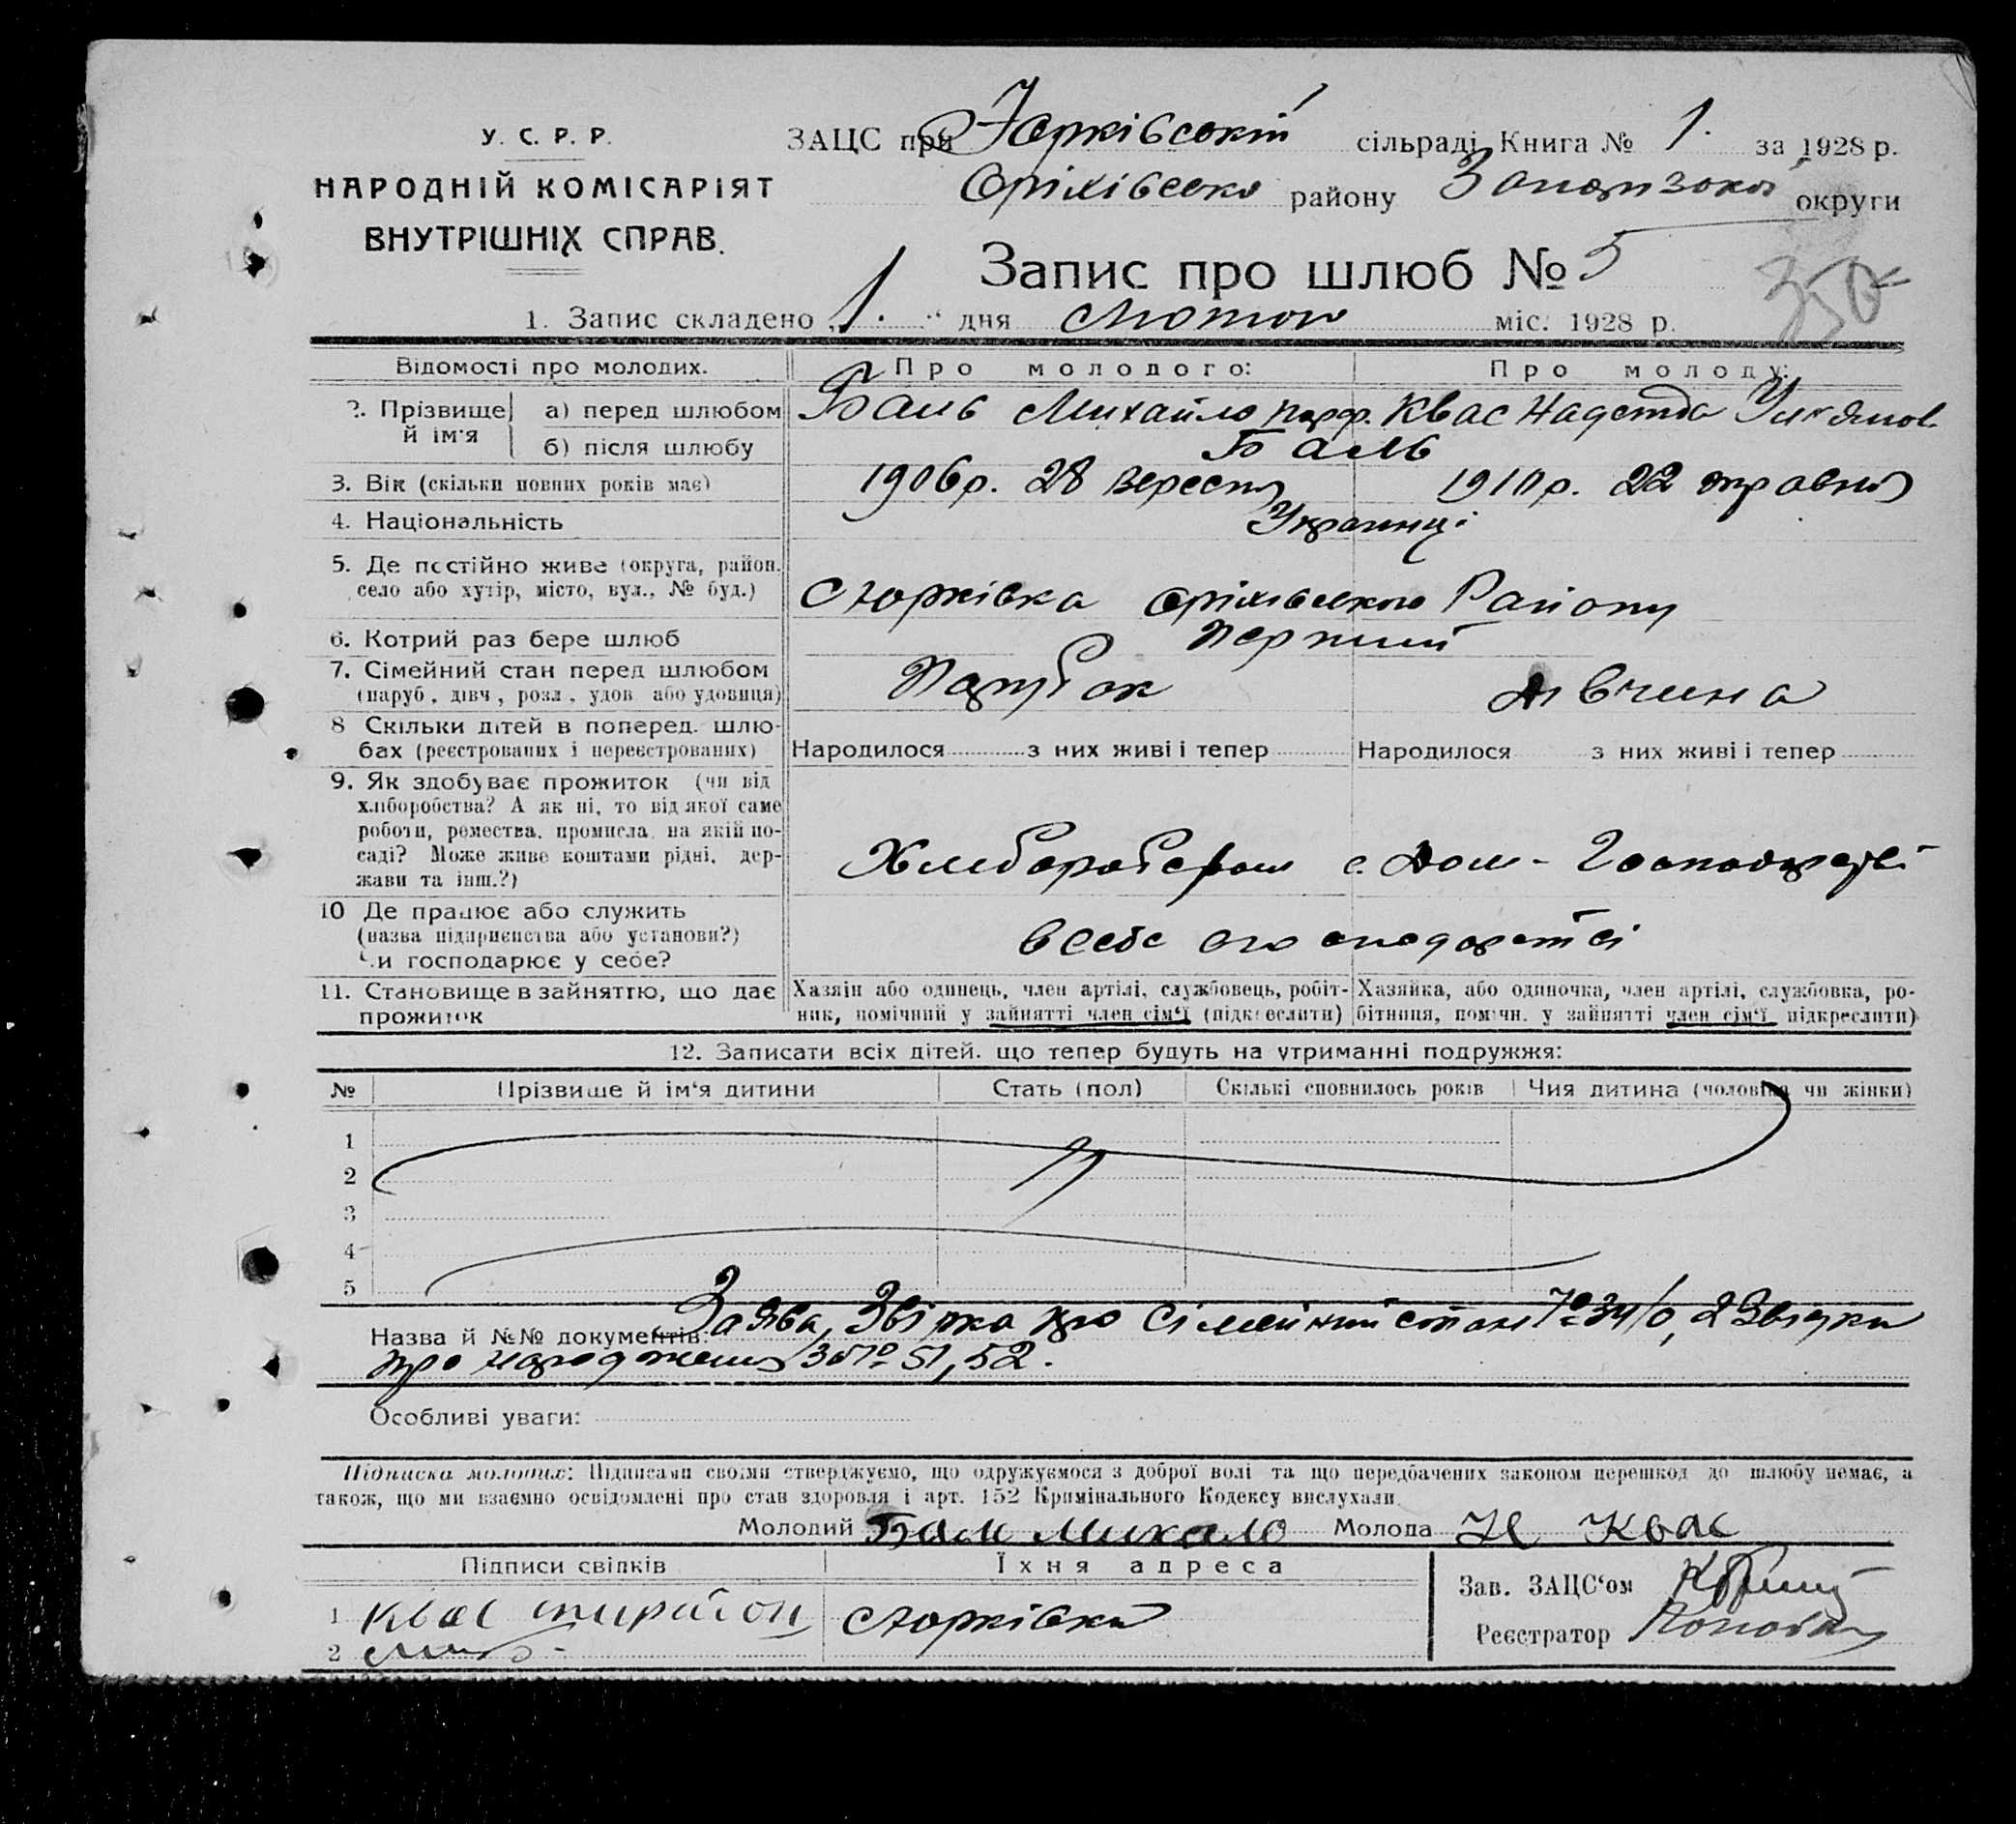 У. С. Р. Р.
НАРОДНІЙ КОМІСАРІЯТ
ВНУТРІШНІХ СПРАВ.
ЗАЦС при Юрківській сільраді Книга № 1. за 1928 р.
Оріхівсько району округи
Запис про шлюб № 5
350
1. Запис складено „1.“ дня Лютого міс. 1928 р.
Відомості про молодих. Про молодого: Про молоду:
2. Прізвище й ім'я а) перед шлюбом Баль Михайло Парф. Квас Надежда
б) після шлюбу Баль
3. Вік (скільки повних років має) 1906р. 28 вересня 1910р. 22 травня
4. Національність Українці
5. Де постійно живе (округа, район, село або хутір, місто, вул., № буд.) с Юрківка Оріхівського Району
6. Котрий раз бере шлюб Перший
7. Сімейний стан перед шлюбом (паруб., дівч., розл., удов. або удовиця) Парубок дівчина
8 Скільки дітей в поперед. шлюбах (реєстрованих і нереєстрованих) Народилося з них живі і тепер Народилося з них живі і тепер
9. Як здобуває прожиток (чи від хліборобства? А як ні, то від якої саме роботи, ремества, промисла, на якій посаді? Може живе коштами рідні, держави та інш.?) Хліборобством
10 Де працює або служить (назва підприємства або установи?) Чи господарює у себе?
11. Становище в зайняттю, що дає прожиток Хазяїн або одинець, член артілі, службовець, робітник, помічний у зайнятті член сім'ї (підкреслити) Хазяйка, або одиночка, член артілі, службовка, робітниця, помічн. у зайнятті член сім'ї підкреслити)
12. Записати всіх дітей. що тепер будуть на утриманні подружжя:
№ Прізвише й ім'я дитини Стать (пол) Скількі сповнилось років Чия дитина (чоловіка чи жінки)
1
2
3
4
5
Назва й №№ документів: Заява, Звірка про Сімейний стан № 34/0, 2 Звірки
про народження за № 51, 52.
Особливі уваги:
Підписка молодих: Підписами своїми стверджуємо, що одружуємося з доброї волі та що передбачених законом перешкод до шлюбу немає, а
також, що ми взаємно освідомлені про стан здоровля і арт. 152 Кримінального Кодексу вислухали.
Молодий Баль Михало Молода Н Квас
Підписи свідків Їхня адреса
Зав. ЗАЦС'ом
1 Квас с Юрківка
Реєстратор
2